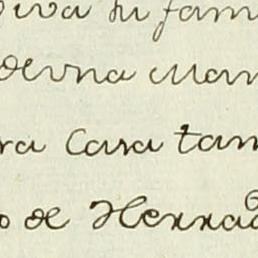 viva su fam
de una man
ra Casa tam
o de Herrad